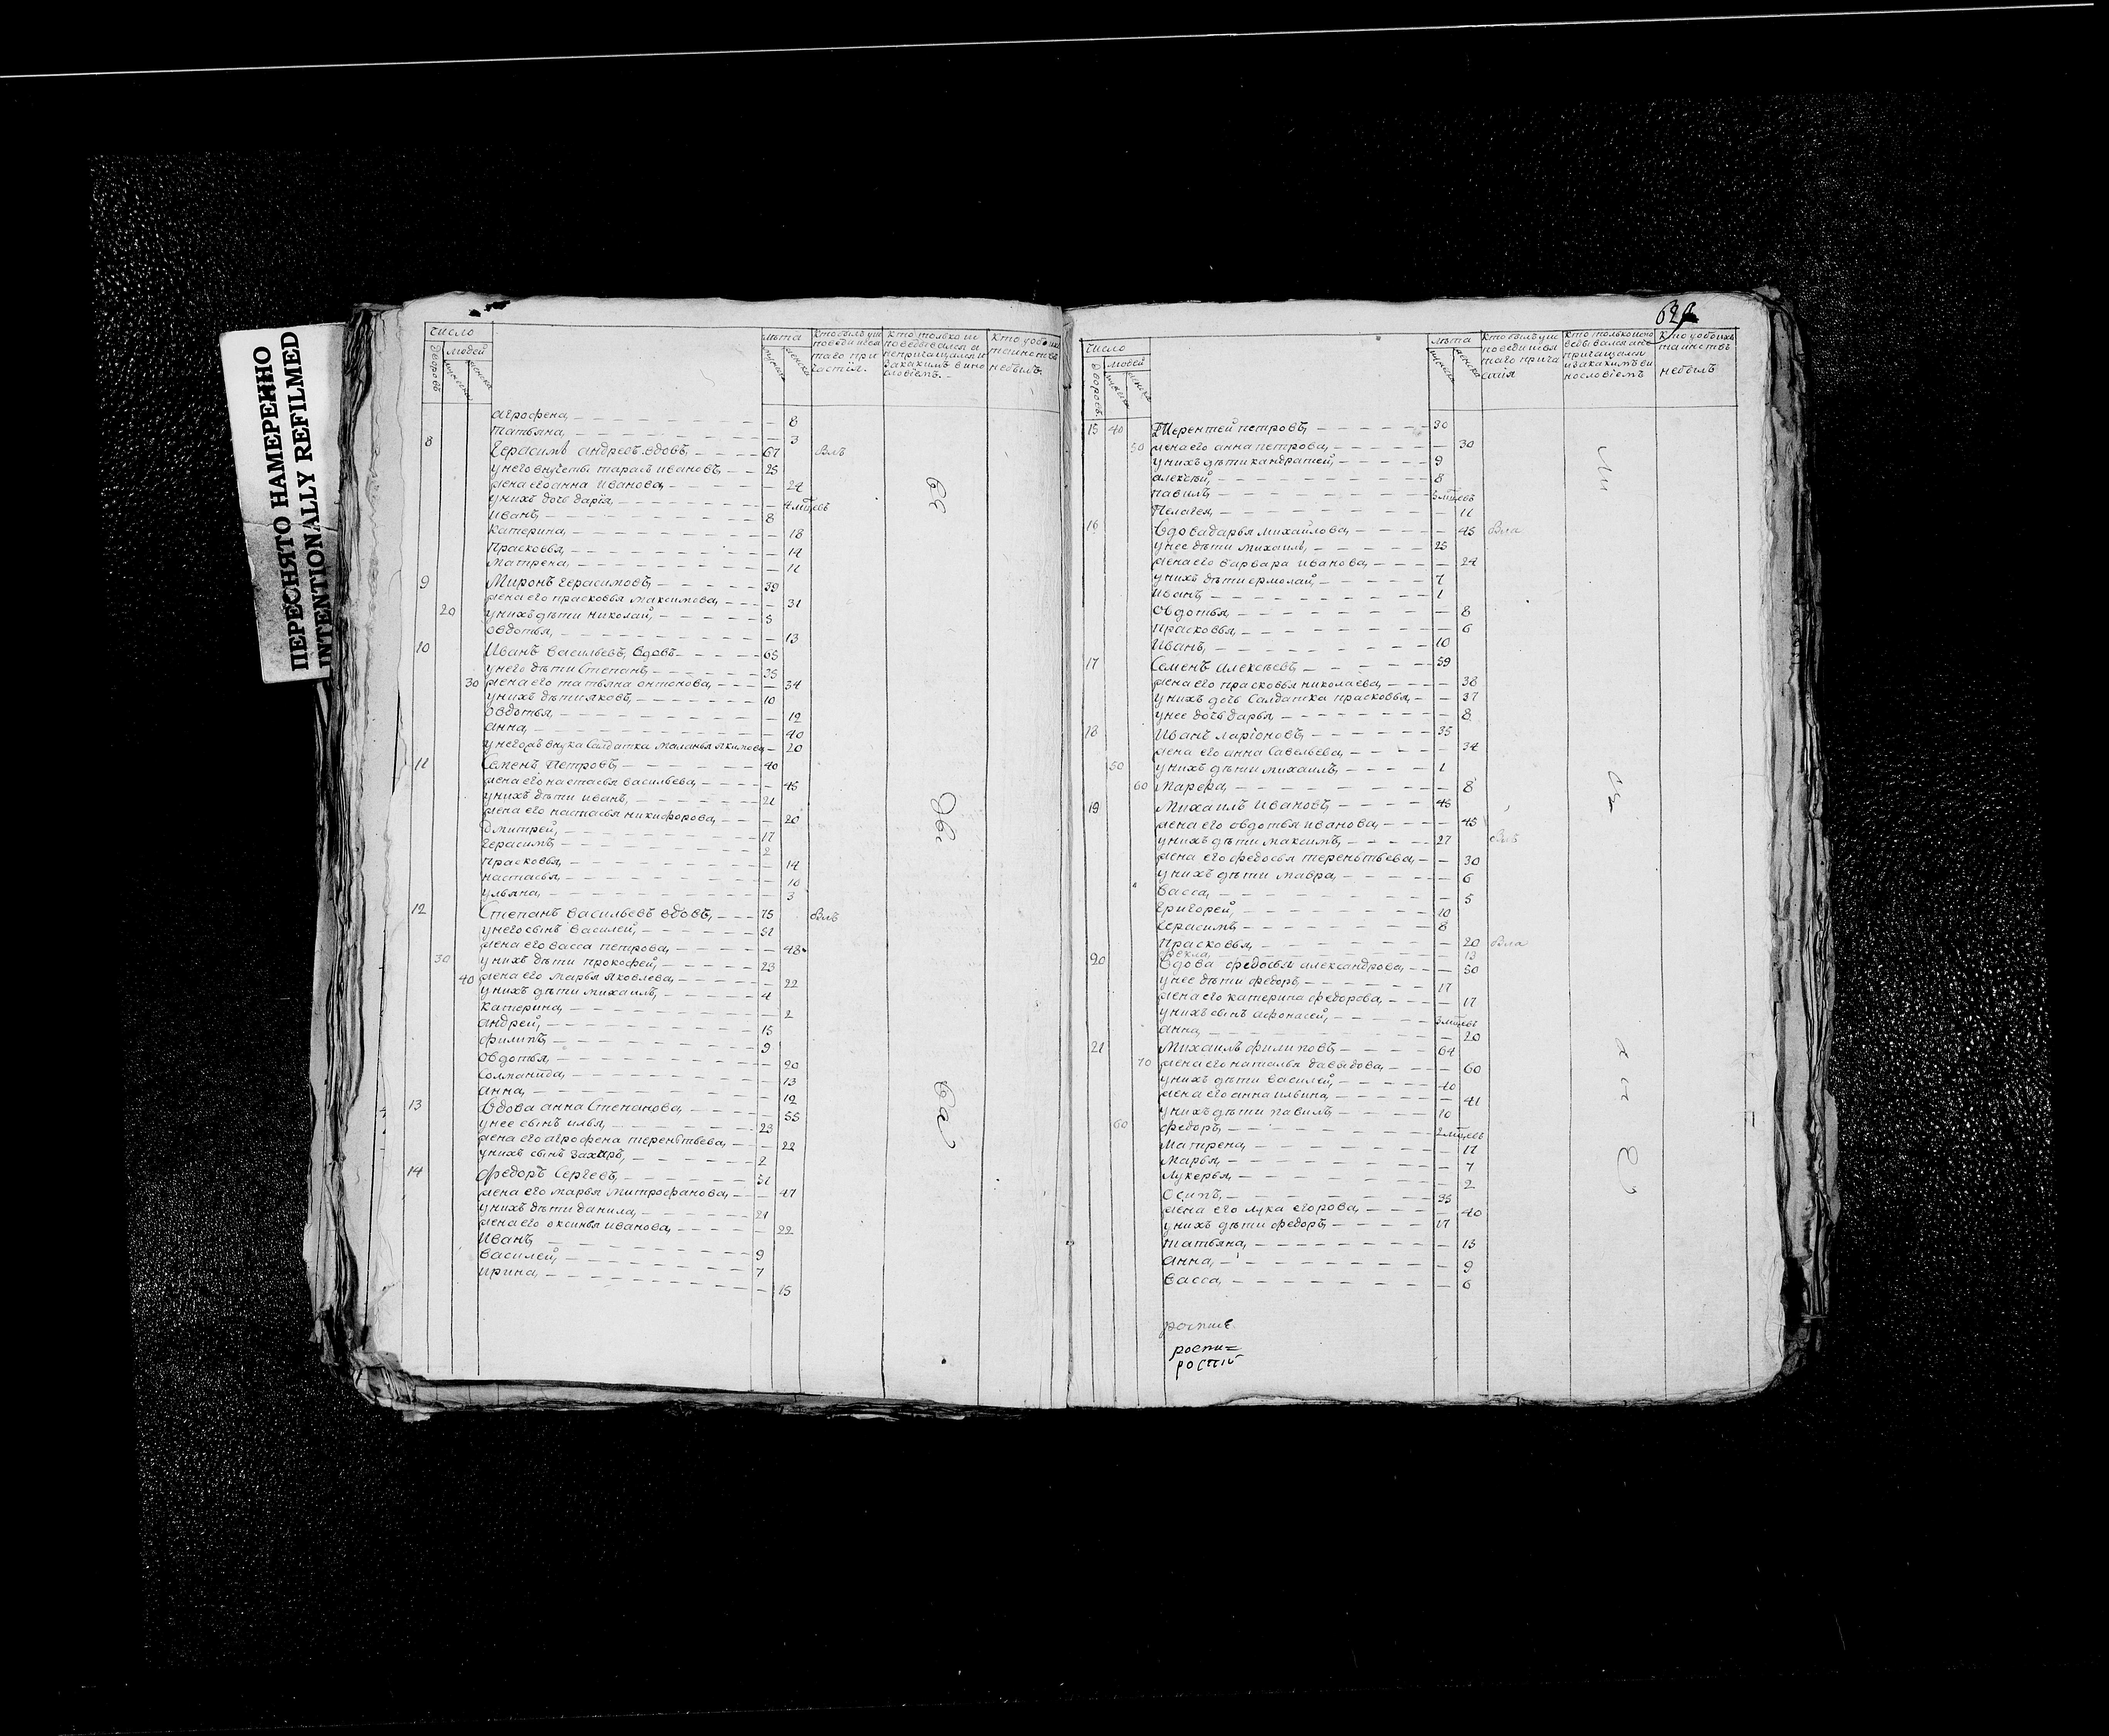 ПЕРЕСНЯТО НАМЕРЕННО
INTENTIONALLY REFILMED
число
людей
дворовъ
мужеска
женска
лѣта
мужеска
женска
агрофена 8
татьяна 3
8 Герасимъ андреевъ вдовъ 67 былъ
у него внучеты тарасъ ивановъ 25
жена его анна иванова 24
у нихъ дочь дарія 4 мцевъ
иванъ 8
катерина 18
прасковья 14
матрена 11
9 Миронъ герасимовъ 39
жена его прасковья максимова 31
20 у нихъ дѣти николай 5
овдотья 13
10 Иванъ васильевъ вдовъ 65
у него дѣти Степанъ 35
30 жена его татьяна онтонова 34
у нихъ дѣти яковъ 10
овдотья 12
анна 40
внука Салдатка маланья якимова 20
11 Семенъ Петровъ 40
жена его настасья васильева 45
у нихъ дѣти иванъ 21
жена его настасья никифорова 20
дмитрей 17
герасимъ 2
прасковья 14
настасья 10
ульяна 3
12 Степанъ васильевъ вдовъ 75 былъ
у него сынъ василей 51
жена его васса петрова 48
30 у нихъ дѣти прокофей 23
40 жена его марья яковлева 22
у нихъ дѣти михаилъ 4
катерина 2
андрей 15
филипъ 9
овдотья 20
соломанида 13
анна 12
13 Вдова анна Степанова 55
у нее сынъ илья 23
жена его агрофена терентьева 22
у нихъ сынъ захаръ 2
14 федоръ Сергеевъ 51
жена его марья митрофанова 47
у нихъ дѣти данила 21
жена его оксинья иванова 22
иванъ 9
василей 7
ирина 15
число
людей
дворовъ
мужеска
женска
лѣта
мужеска
женска
15 40 Терентей петровъ 30
50 жена его анна петрова 30
у нихъ дѣти кандратей 9
алексѣй 8
павилъ 5 мцевъ
Пелагея 11
16 Вдова дарья михайлова 45 была
у нее дѣти михаилъ 25
жена его варвара иванова 24
у нихъ дѣти ермолай 7
иванъ 1
овдотья 8
прасковья 6
иванъ 10
17 Семенъ алексѣевъ 59
жена его прасковья николаева 38
у нихъ дочь Салдатка прасковья 37
у нее дочь дарья 8
18 Иванъ ларіоновъ 35
жена его анна Савельева 34
50 у нихъ дѣти михаилъ 1
60 Марфа 8
19 Михаилъ ивановъ 45
жена его овдотья иванова 45
у нихъ дѣти максимъ 27 былъ
жена его федосья терентьева 30
у нихъ дѣти мавра 6
васса 5
григорей 10
герасимъ 8
прасковья 20 была
фекла 13
20 Вдова федосья александрова 50
у нее дѣти федоръ 17
жена его катерина федорова 17
у нихъ сынъ афонасей 3 мцевъ
анна 20
21 Михаилъ филиповъ 64
70 жена его наталья давыдова 60
у нихъ дѣти василей 40
жена его анна ильина 41
у нихъ дѣти павилъ 10
60 федоръ 2 мцевъ
матрена 11
марья 7
лукерья 2
осипъ 35
жена его лука егорова 40
у нихъ дѣти федоръ 17
татьяна 13
анна 9
васса 6